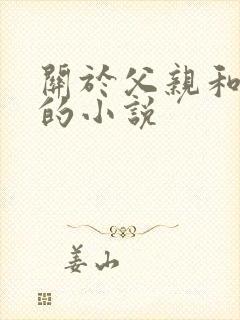 關於父親和
的小說
姜山